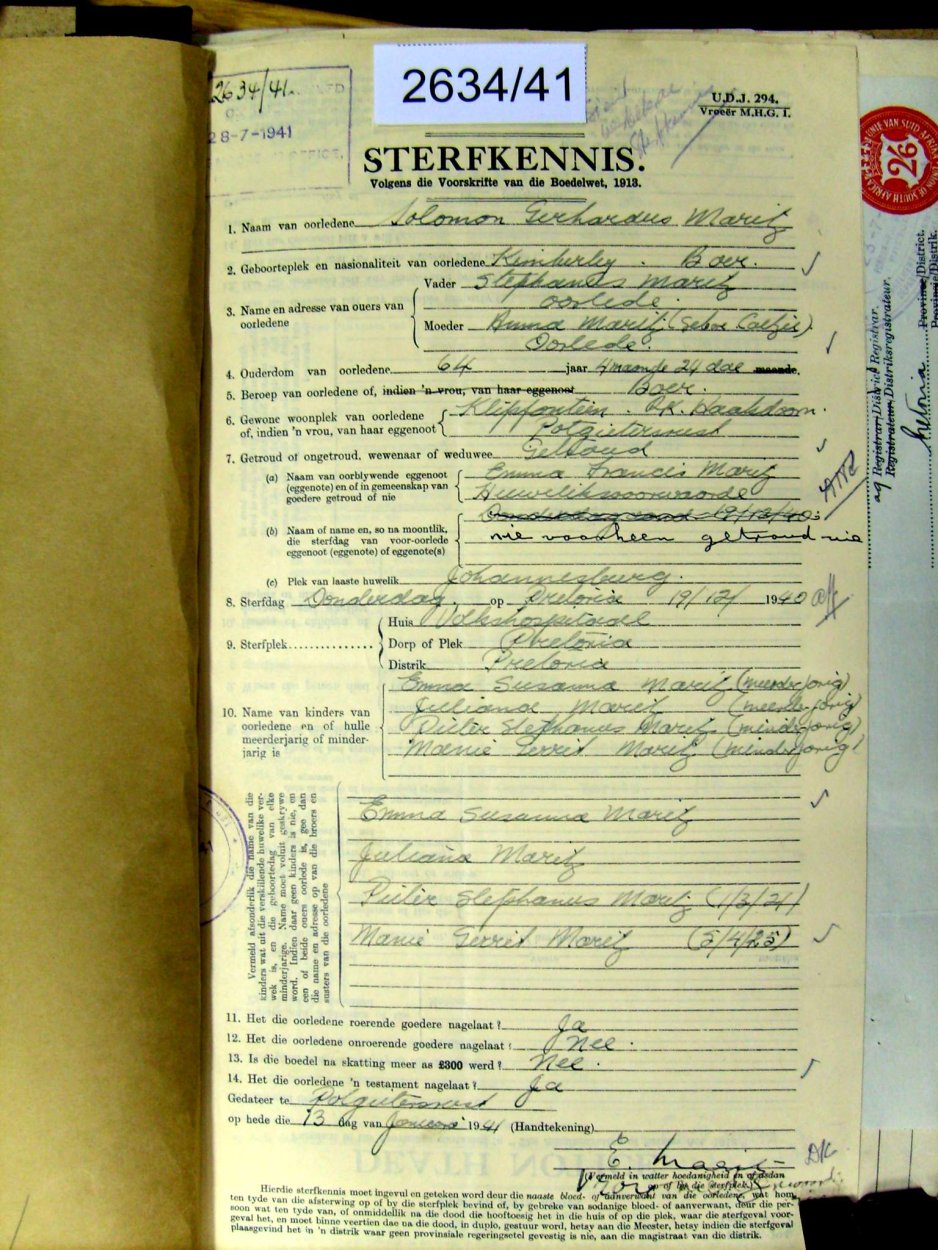 2634/41
2634/41.
28-7-1941
U.D.J. 294.
Vroeër M.H.G. 1.
STERFKENNIS.
Volgens die Voorskrifte van die Boedelwet, 1913.
1. Naam van oorledene Solomon Gerhardus Maritz
2. Geboorteplek en nasionaliteit van oorledene Kimberley. Boer.
3. Name en adresse van ouers van oorledene
Vader Stephanus Maritz
oorlede.
Moeder Anna Maritz (gebore Coetzee)
Oorlede.
4. Ouderdom van oorledene 64 jaar 4 maande 24 dae maande.
5. Beroep van oorledene of, indien 'n vrou, van haar eggenoot Boer.
6. Gewone woonplek van oorledene of, indien 'n vrou, van haar eggenoot
Klipfontein. P.K. Haakdoorn.
Potgietersrust
7. Getroud of ongetroud, wewenaar of weduwee Getroud
(a) Naam van oorblywende eggenoot (eggenote) en of in gemeenskap van goedere getroud of nie
Emma Francis Maritz
Huweliksvoorwaarde
(b) Naam of name en, so na moontlik, die sterfdag van voor-oorlede eggenoot (eggenote) of eggenote(s)
19/12/40
nie voorheen getroud nie
(c) Plek van laaste huwelik Johannesburg.
8. Sterfdag Donderdag, op Pretoria 19/12/ 1940
9. Sterfplek
Huis Volkshospitaal
Dorp of Plek Pretoria
Distrik Pretoria
10. Name van kinders van oorledene en of hulle meerderjarig of minderjarig is
Emma Susanna Maritz (meerderjarig)
Juliana Maritz (meerderjarig)
Pieter Stephanus Maritz (minderjarig)
Manie Gerrit Maritz (minderjarig)
Vermeld afsonderlik die name van die
kinders wat uit die verskillende huwelike ver-
wek is, en die geboortedag van elke
minderjarige. Name moet voluit geskrywe
word. Indien daar geen kinders is nie, en
een of beide ouers oorlede is, gee dan
die name en adresse op van die broers en
susters van die oorledene
Emma Susanna Maritz
Juliana Maritz
Pieter Stephanus Maritz (1/3/21)
Manie Gerrit Maritz (5/4/25)
11. Het die oorledene roerende goedere nagelaat? Ja
12. Het die oorledene onroerende goedere nagelaat? Nee.
13. Is die boedel na skatting meer as £300 werd? Nee.
14. Het die oorledene 'n testament nagelaat? Ja
Gedateer te Potgietersrust
op hede die 13 dag van Januarie 1941 (Handtekening)
E. Maritz
(Vermeld in watter hoedanigheid en of
of by die sterfplek)
DEATH NOTICE
Hierdie sterfkennis moet ingevul en geteken word deur die naaste bloed- of aanverwant van die oorledene, wat hom
ten tyde van die afsterwing op of by die sterfplek bevind of, by gebreke van sodanige bloed- of aanverwant, deur die per-
soon wat ten tyde van, of onmiddellik na die dood die hooftoesig het in die huis of op die plek, waar die sterfgeval voor-
geval het, en moet binne veertien dae na die dood, in duplo, gestuur word, hetsy aan die Meester, hetsy indien die sterfgeval
plaasgevind het in 'n distrik waar geen provinsiale regeringsetel gevestig is nie, aan die magistraat van die distrik.
UNIE VAN SUID AFRIKA
UNION OF SOUTH AFRICA
26
Registrar/District Registrar.
Registrateur/Distriksregistrateur.
Province/District.
Provinsie/Distrik.